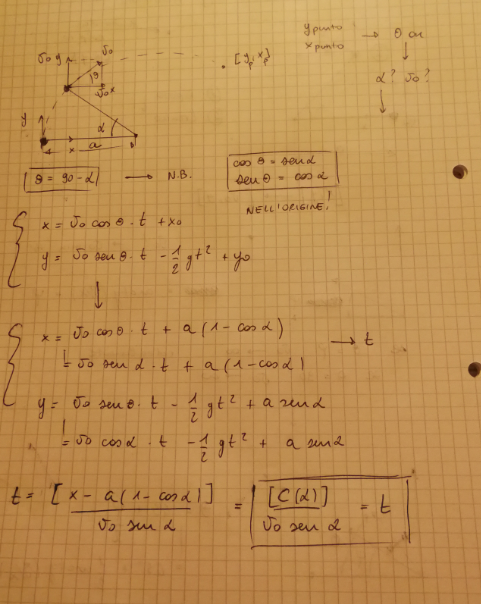 y punto
x punto → θ on
α? v0?
v0y v0 [yp, xp]
θ
v0x
y α
x a
θ = 90 - α → N.B.
cos θ = sen α
sen θ = cos α
NELL'ORIGINE!
x = v0 cos θ · t + x0
y = v0 sen θ · t - 1/2 gt² + y0
x = v0 cos θ · t + a (1 - cos α) → t
= v0 sen α · t + a (1 - cos α)
y = v0 sen θ · t - 1/2 gt² + a sen α
= v0 cos α · t - 1/2 gt² + a sen α
t = [x - a (1 - cos α)] / v0 sen α = [C(α)] / v0 sen α = t